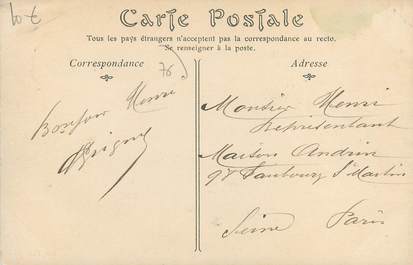 lot
Carte Postale
Tous les pays étrangers n'acceptent pas la correspondance au recto.
Se renseigner à la poste.
Correspondance
Adresse
76
Bonjour Henri
Monsieur Henri
Représentant
Maison Andrin
98 Faubourg St Martin
Seine Paris